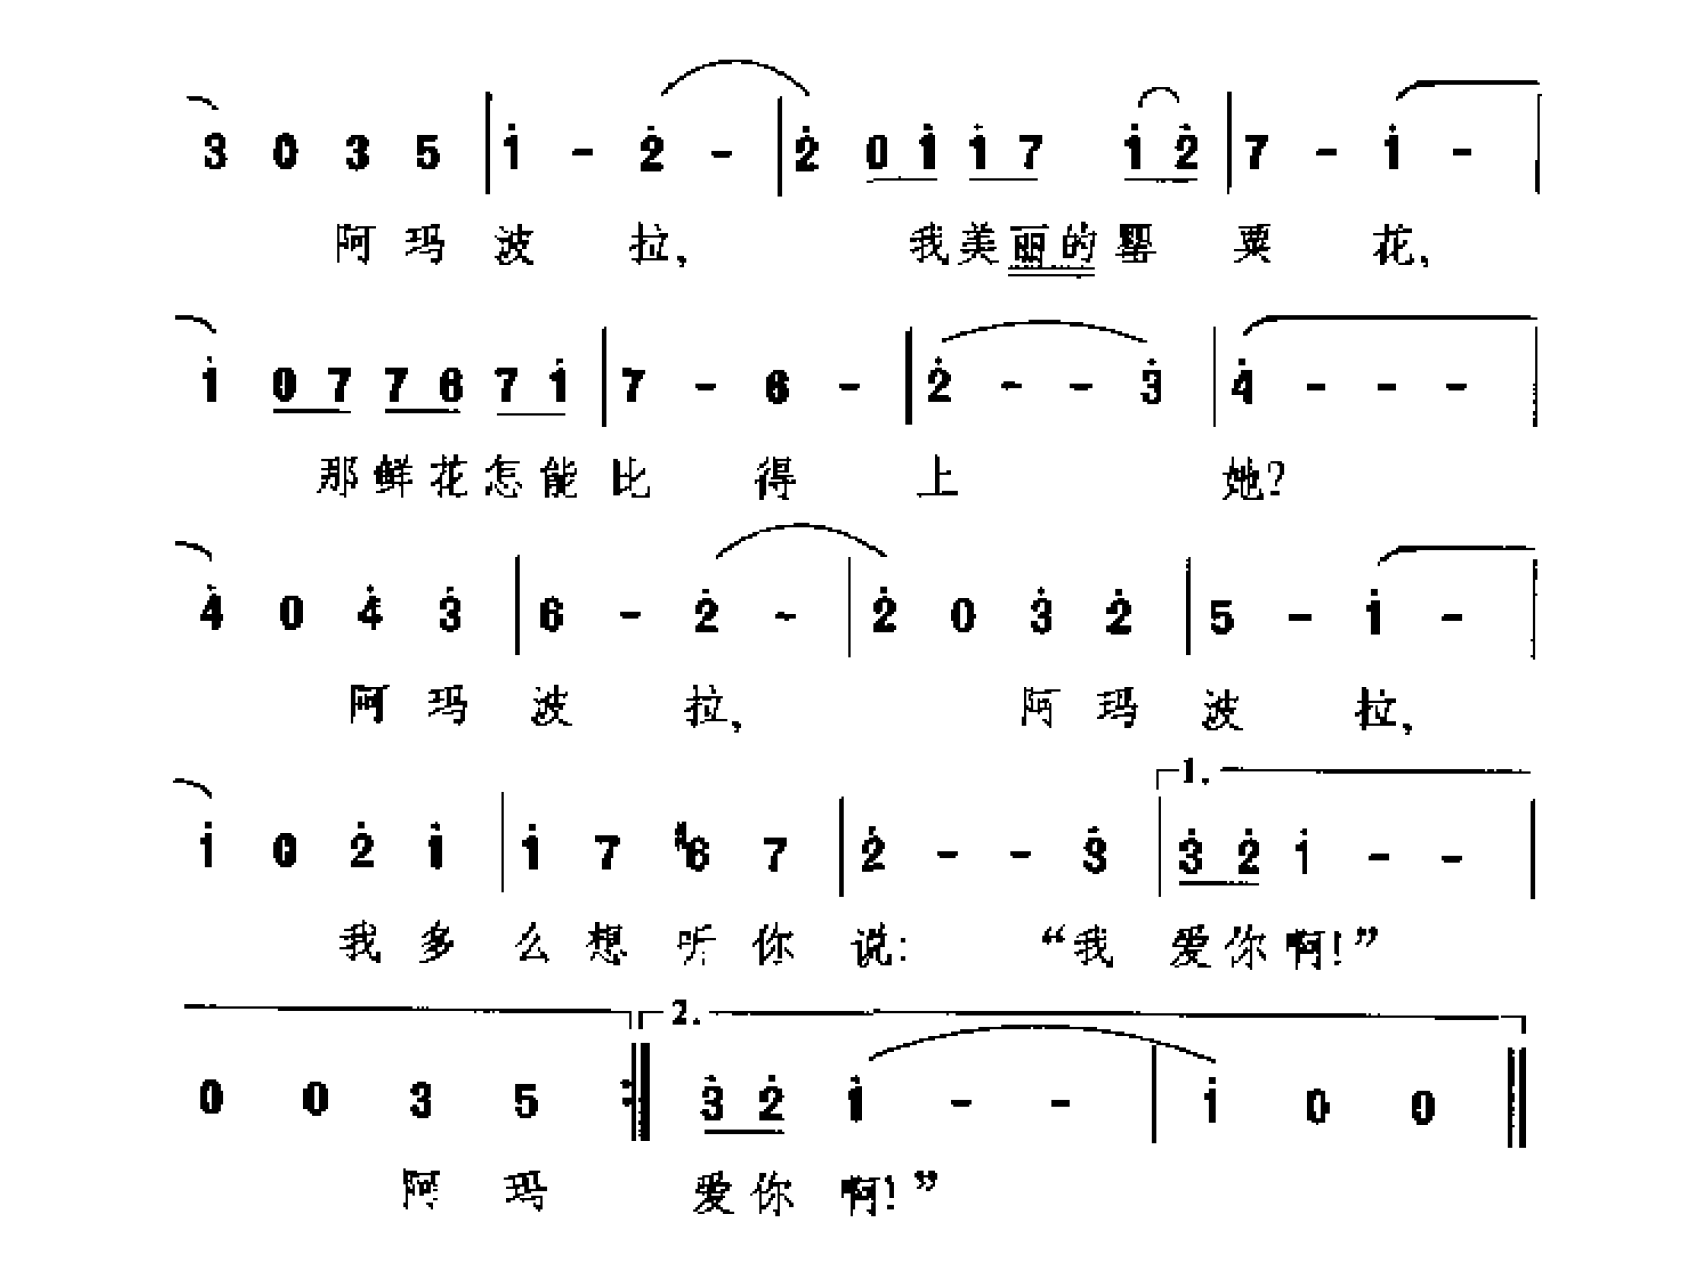 3 0 3 5 | i - 2̇ - | 2̇ 0 i i 7 i 2̇ | 7 - i - |
阿 玛 波 拉, 我 美 丽 的 罂 粟 花,
i 0 7 7 6 7 i | 7 - 6 - | 2̇ - - 3̇ | 4̇ - - - |
那 鲜 花 怎 能 比 得 上 她?
4̇ 0 4̇ 3̇ | 6 - 2̇ - | 2̇ 0 3̇ 2̇ | 5 - i - |
阿 玛 波 拉, 阿 玛 波 拉,
1.
i 0 2̇ i | i 7 #6 7 | 2̇ - - 3̇ | 3̇ 2̇ i - - |
我 多 么 想 听 你 说: “我 爱 你 啊!”
2.
0 0 3 5 :‖ 3̇ 2̇ i - - | i 0 0 ‖
阿 玛 爱 你 啊!”